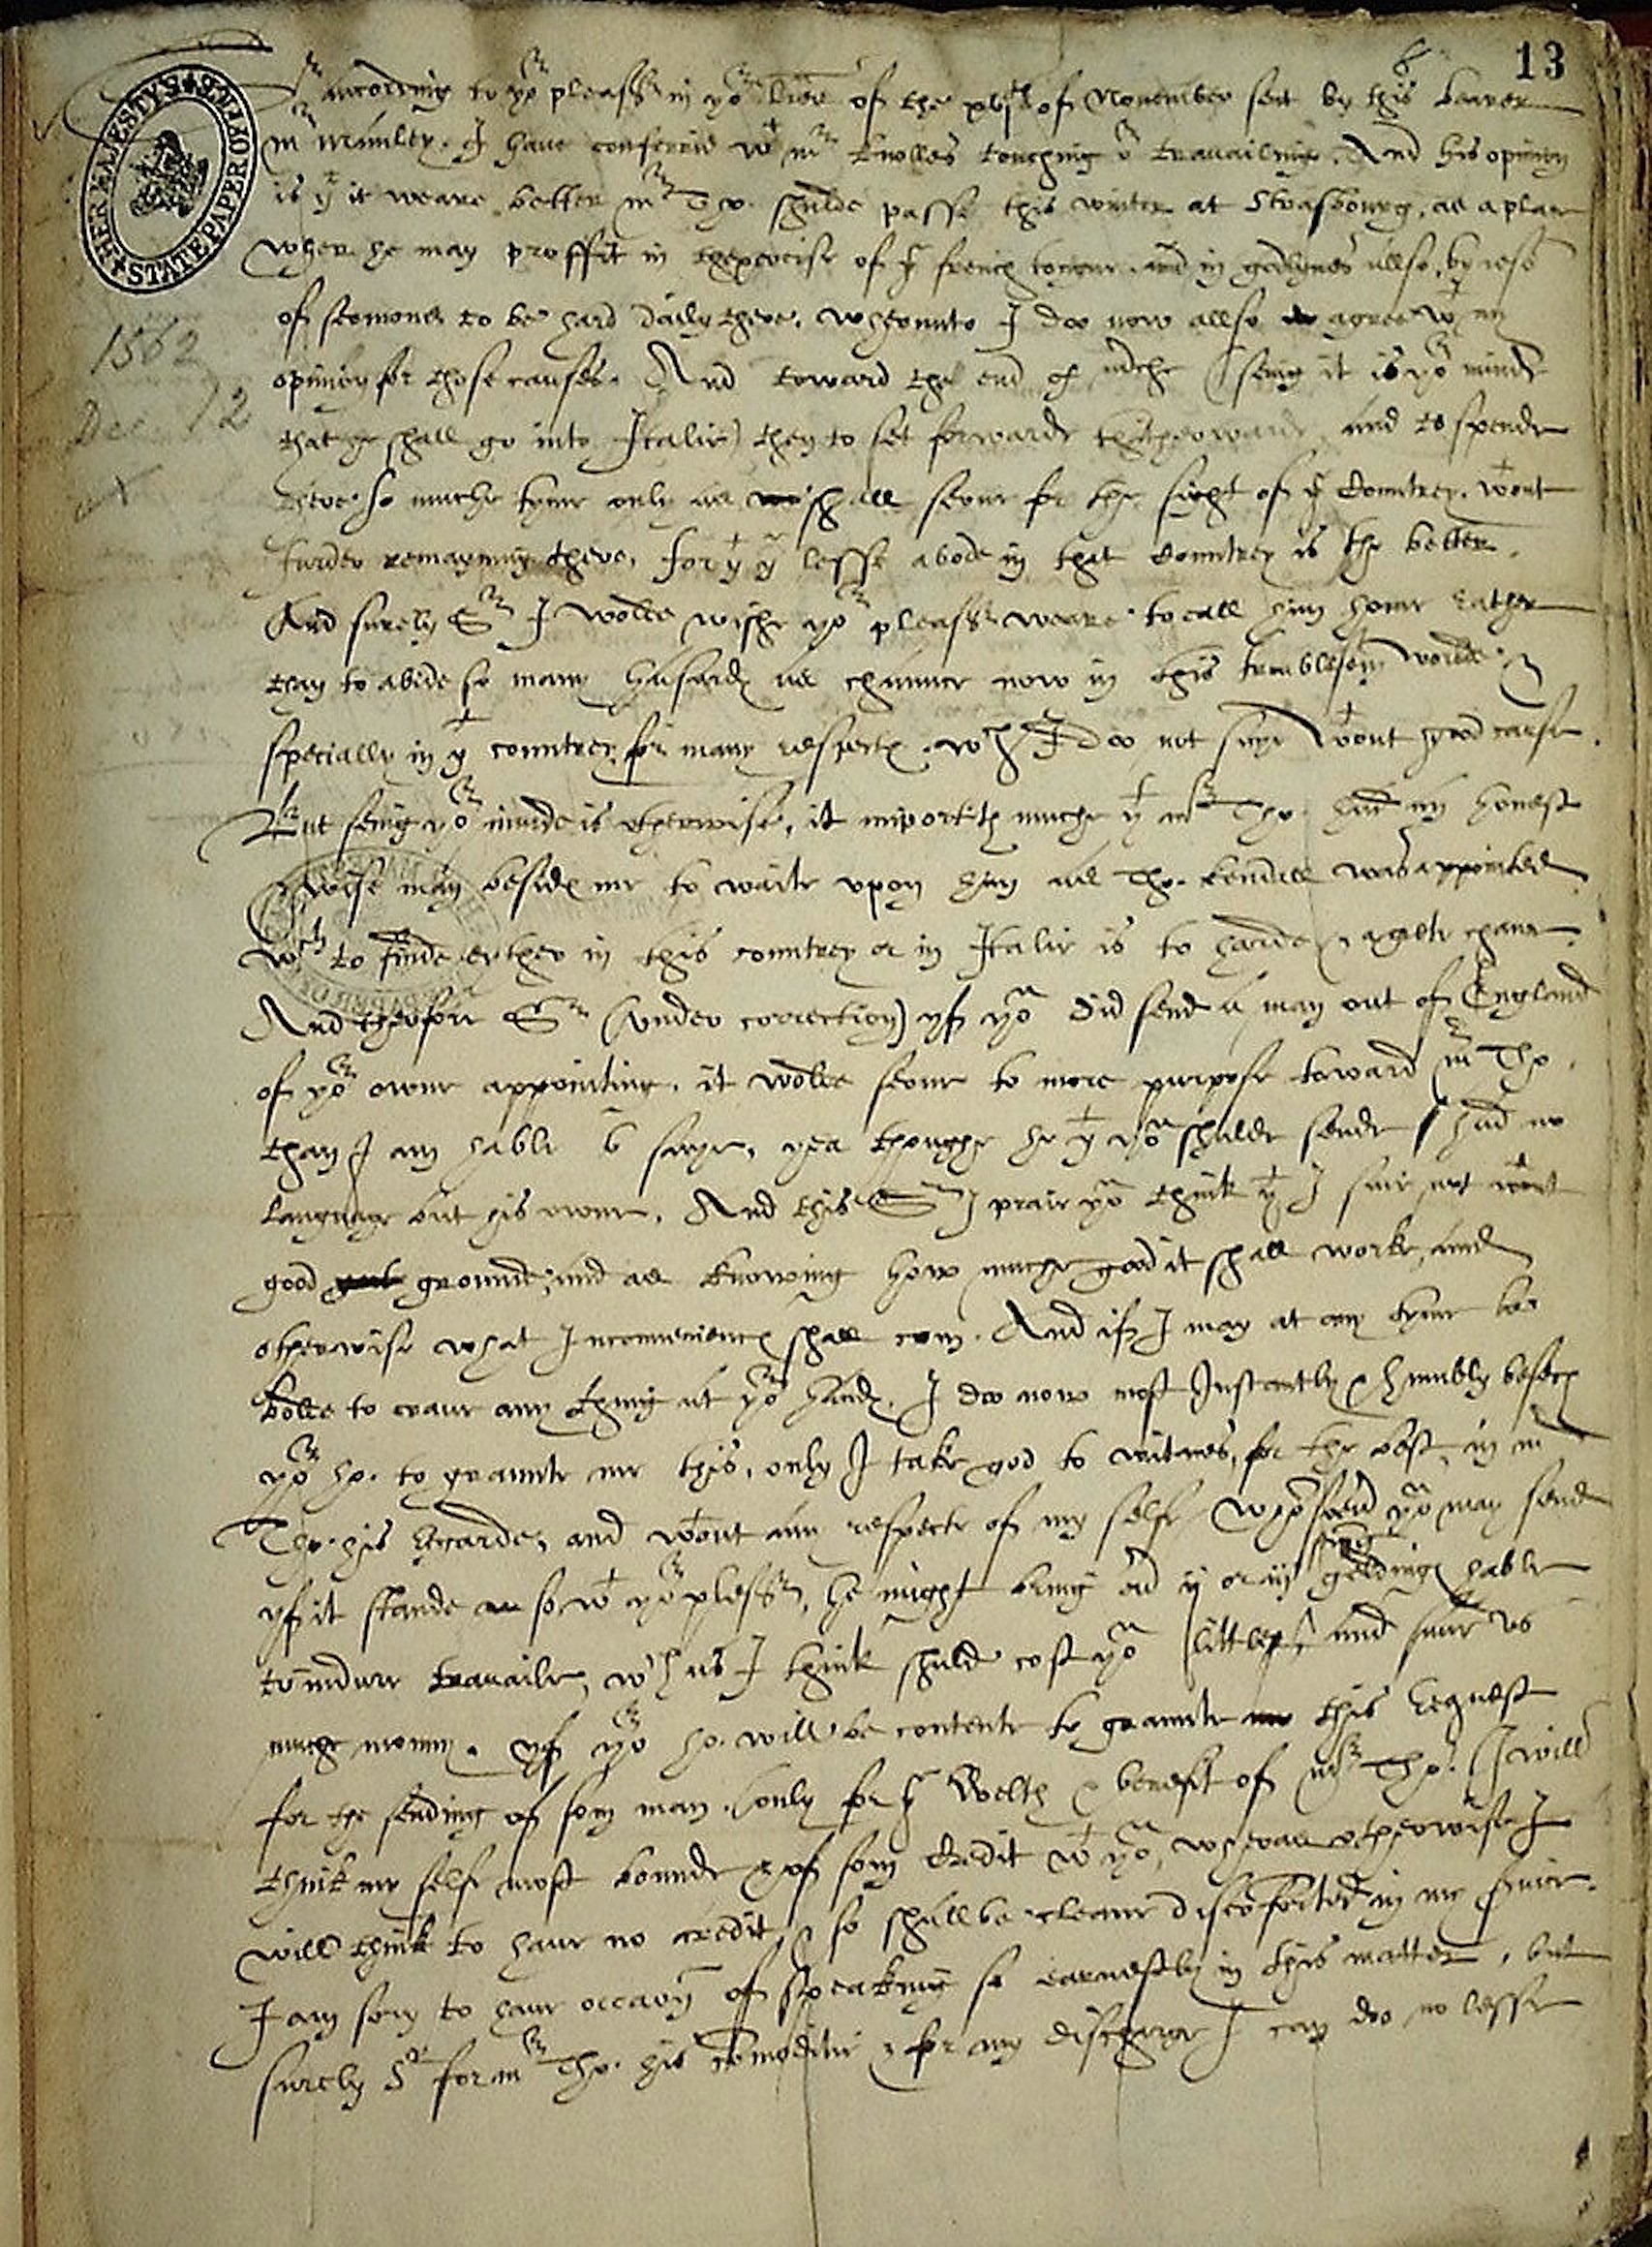 13
HER MAJESTYS STATE PAPER OFFICE
1562
Dec. 12
Sr according to yor pleassr in yor lres of the xvjth of November sent by this bearer
mr Mimley. I have conferrid wt mr knolles touching or travailing. And his opinion
is yt it weare better mr Tho. shulde passe this winter at Strasbourg, as a place
wher he may proffit in thexercise of ye french tongue and in godlynes allso, by reso
of sermons to be hard daily there. whereunto I doo now allso agree wt my
opinion for those causes. And toward the end of mche (seing it is yor minde
that he shall go into Italie) then to set forwarde thitherwarde and to spende
there so muche tyme only as shall serve for the sight of ye Countrey. wtout
furder remayning there, for yt ye lesse abode in that Countrey is the better.
And surely Sr I wolde wishe yor pleassr weare to call him home rather
than to abide so many hasards as chaunce now in this troublesom worlde
specially in yt countrey for many respects. wch I doo not saye wtout good cause.
But seing yor minde is otherwise, it importith muche yt mr Tho. have an honest
& wise man besides me to waite upon him as Tho. kendall was appointed
wch to finde eyther in this countrey or in Italie is to harde a chaunce
And therfore Sr (under correction) yf you did send a man out of England
of yor owne appointing, it wolde serve to more purpose toward mr Tho.
than I am hable to saye, yea thoughe he yt you shulde sende had no
language but his owne. And this Sr I praie you think yt I saie not wtout
good ground, and as knowing how muche good it shall worke, and
otherwise what Inconvenience shall com. And if I may at any tyme be
bolde to crave any thing at yor hands, I doo now most Instantly & humbly besech
yor ho. to graunte me this, only I take god to witnes, for the best in mr
Tho. his regarde, and wtout any respecte of my self. Whosoever you may send
yf it stande so wt yor plessr, he might bring over ij or iij geldings hable
to indure travaile, wch as I think shuld cost you little, and save us
muche monny. Yf yor ho. will be contente to graunte this Request
for the sending of som man (only for ye Welth & benefit of mr Tho.) I will
think my self most bounde & of som Credit wt you, wheras otherwise I
will think to have no credit, & so shall be cleane discoforted in my service.
I am sory to have occaon of speaking so earnestly in this matter, but
surely Sr for mr Tho. his comoditie & for my discharge I can doo no lesse